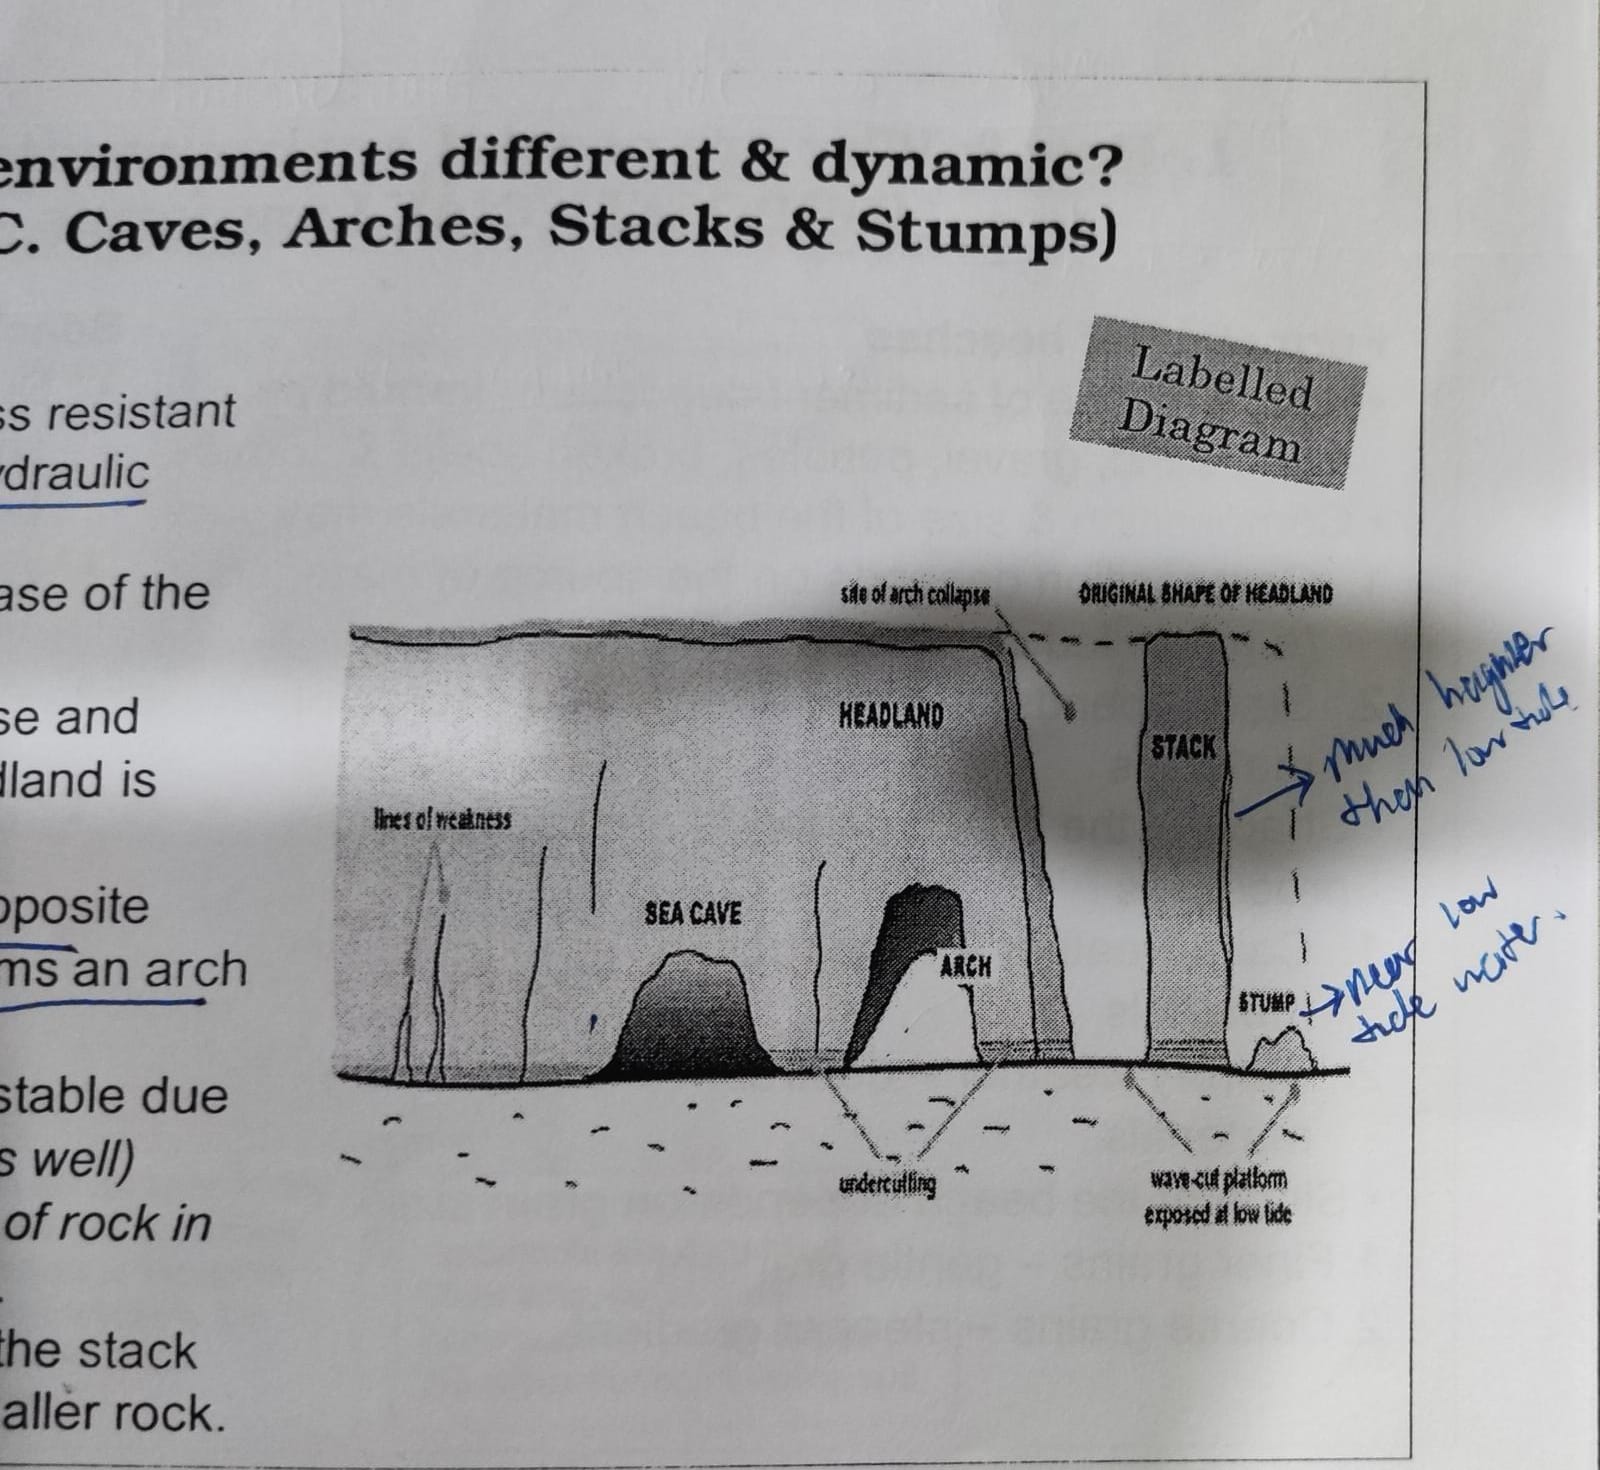 environments different & dynamic?
C. Caves, Arches, Stacks & Stumps)
Labelled
Diagram
ss resistant
ydraulic
ase of the
se and
dland is
pposite
ms an arch
stable due
s well)
of rock in
the stack
aller rock.
site of arch collapse
ORIGINAL SHAPE OF HEADLAND
HEADLAND
STACK
lines of weakness
SEA CAVE
ARCH
STUMP
undercutting
wave-cut platform
exposed at low tide
much
than low tide
near low
tide water.